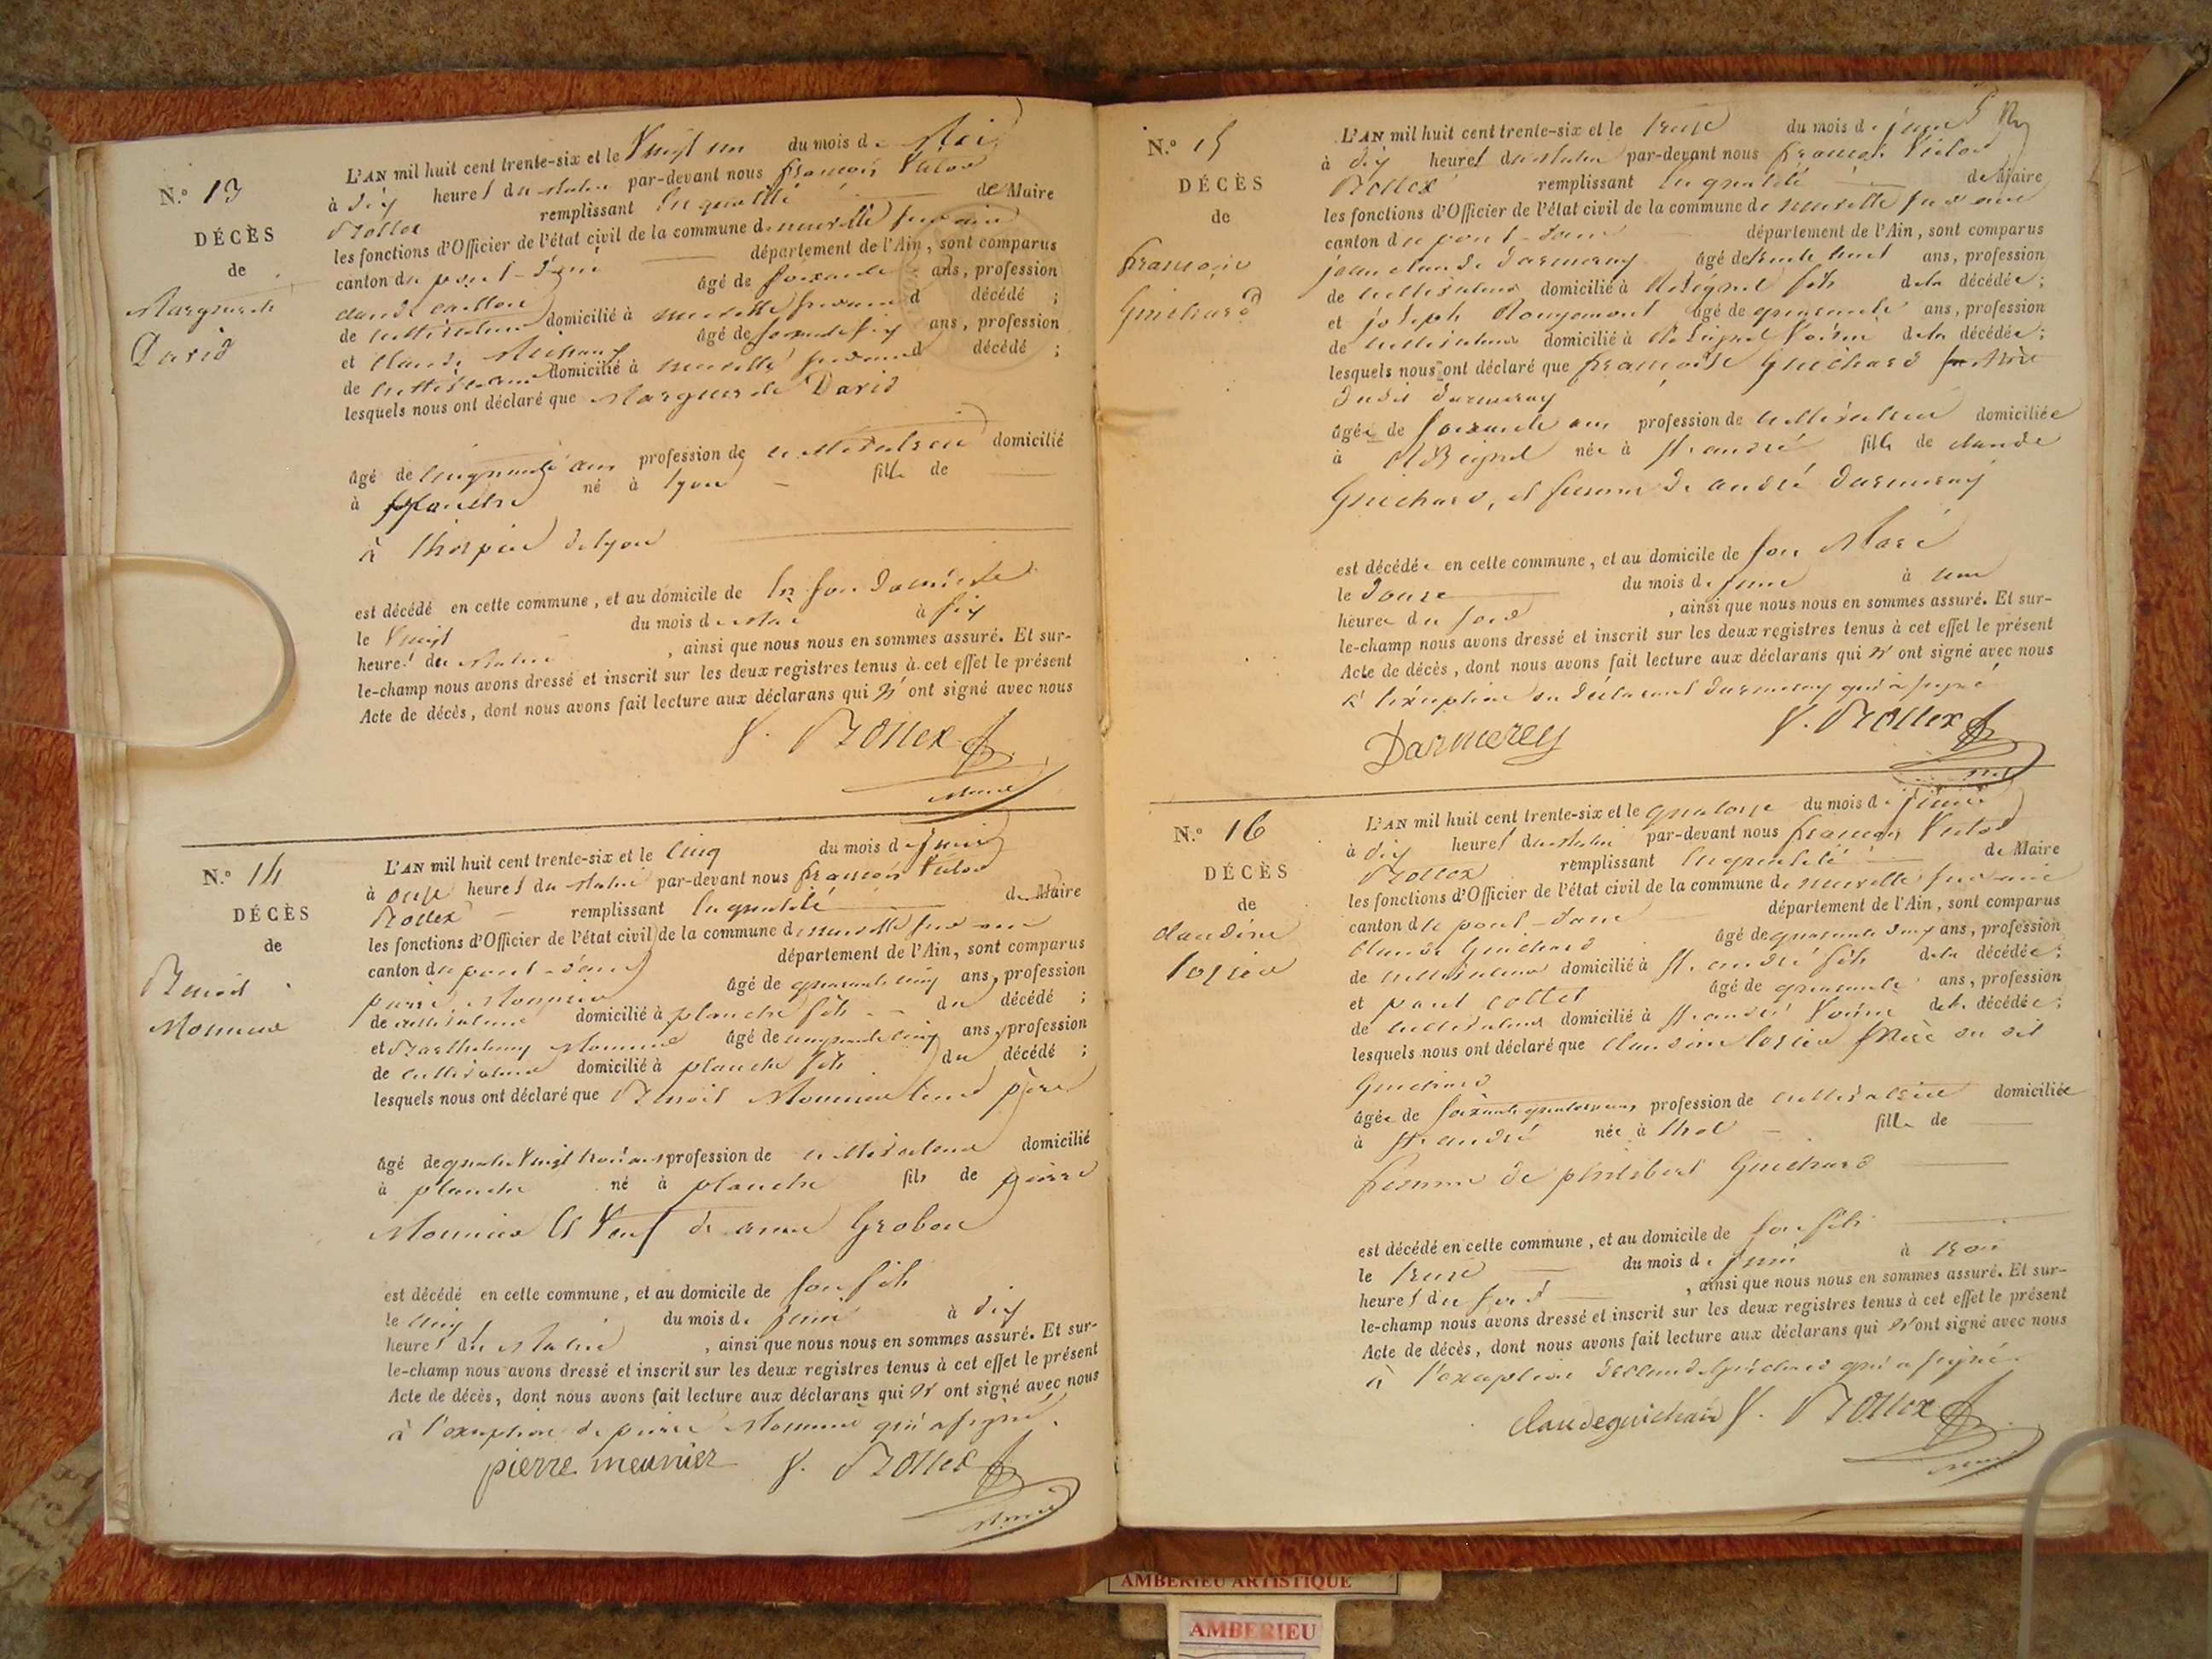 N.° 13
DÉCÈS
de
Marguerite
David
L'AN mil huit cent trente-six et le Vingt un du mois de Mai
à dix heures du matin par-devant nous françois Victor
Rollex remplissant en qualité de Maire
les fonctions d'Officier de l'état civil de la commune de neuville sur ain
canton du pont-d'ain département de l'Ain, sont comparus
claude âgé de soixante ans, profession
de cultivateur domicilié à neuville sur ain d décédé ;
et Claude âgé de ans, profession
de cultivateur domicilié à neuville sur ain d décédé ;
lesquels nous ont déclaré que Marguerite David
âgé de cinquante ans profession de cultivatrice domicilié
à planche né à lyon fille de
à l'hospice de lyon
est décédé en cette commune, et au domicile de en son domicile
le Vingt du mois de Mai à six
heures du Matin , ainsi que nous nous en sommes assuré. Et sur-
le-champ nous avons dressé et inscrit sur les deux registres tenus à cet effet le présent
Acte de décès, dont nous avons fait lecture aux déclarans qui N'ont signé avec nous
V. Rollex
N.° 14
DÉCÈS
de
Benoit
Mounier
L'AN mil huit cent trente-six et le cinq du mois de Juin
à onze heures du Matin par-devant nous françois Victor
Rollex remplissant en qualité de Maire
les fonctions d'Officier de l'état civil de la commune de neuville sur ain
canton du pont-d'ain département de l'Ain, sont comparus
pierre Mounier âgé de quarante cinq ans, profession
de cultivateur domicilié à planche fils du décédé ;
et Barthelemy Mounier âgé de cinq ans, profession
de cultivateur domicilié à planche fils du décédé ;
lesquels nous ont déclaré que Benoit Mounier leur père
âgé de quatre Vingt trois ans profession de cultivateur domicilié
à planche né à planche fils de pierre
Mounier et Veuf de anne Grobon
est décédé en cette commune, et au domicile de son fils
le cinq du mois de Juin à dix
heures du Matin , ainsi que nous nous en sommes assuré. Et sur-
le-champ nous avons dressé et inscrit sur les deux registres tenus à cet effet le présent
Acte de décès, dont nous avons fait lecture aux déclarans qui N'ont signé avec nous
à l'exception de pierre Mounier qui a signé.
pierre meunier V. Rollex
N.° 15
DÉCÈS
de
françoise
Guichard
L'AN mil huit cent trente-six et le treize du mois de juin
à dix heures du Matin par-devant nous françois Victor
Rollex remplissant en qualité de Maire
les fonctions d'Officier de l'état civil de la commune de neuville sur ain
canton du pont-d'ain département de l'Ain, sont comparus
jean claude darmeray âgé de trente huit ans, profession
de cultivateur domicilié à fils de la décédée ;
et joseph Rougemont âgé de quarante ans, profession
de cultivateur domicilié à Voisin de la décédée ;
lesquels nous ont déclaré que françoise Guichard Mère
dudit darmeray
âgée de soixante ans profession de cultivatrice domiciliée
à née à St. andré fille de claude
Guichard, et femme de andré darmeray
est décédée en cette commune, et au domicile de son Mari
le douze du mois de juin à une
heure du soir , ainsi que nous nous en sommes assuré. Et sur-
le-champ nous avons dressé et inscrit sur les deux registres tenus à cet effet le présent
Acte de décès, dont nous avons fait lecture aux déclarans qui N'ont signé avec nous
à l'exception du déclarant darmeray qui a signé
Darmerey V. Rollex
N.° 16
DÉCÈS
de
claudine
L'AN mil huit cent trente-six et le quatorze du mois de juin
à dix heures du Matin par-devant nous françois Victor
Rollex remplissant en qualité de Maire
les fonctions d'Officier de l'état civil de la commune de neuville sur ain
canton de pont-d'ain département de l'Ain, sont comparus
Claude Guichard âgé de quarante ans, profession
de cultivateur domicilié à St. andré fils de la décédée ;
et paul collet âgé de quarante ans, profession
de cultivateur domicilié à St. andré Voisin de la décédée ;
lesquels nous ont déclaré que claudine Mère du dit
Guichard
âgée de soixante quatorze ans profession de cultivatrice domiciliée
à St. andré née à thol fille de
femme de philibert Guichard
est décédé en cette commune, et au domicile de son fils
le treize du mois de juin à trois
heures du soir , ainsi que nous nous en sommes assuré. Et sur-
le-champ nous avons dressé et inscrit sur les deux registres tenus à cet effet le présent
Acte de décès, dont nous avons fait lecture aux déclarans qui N'ont signé avec nous
à l'exception de claude Guichard qui a signé.
claude guichard V. Rollex
AMBERIEU ARTISTIQUE
AMBERIEU